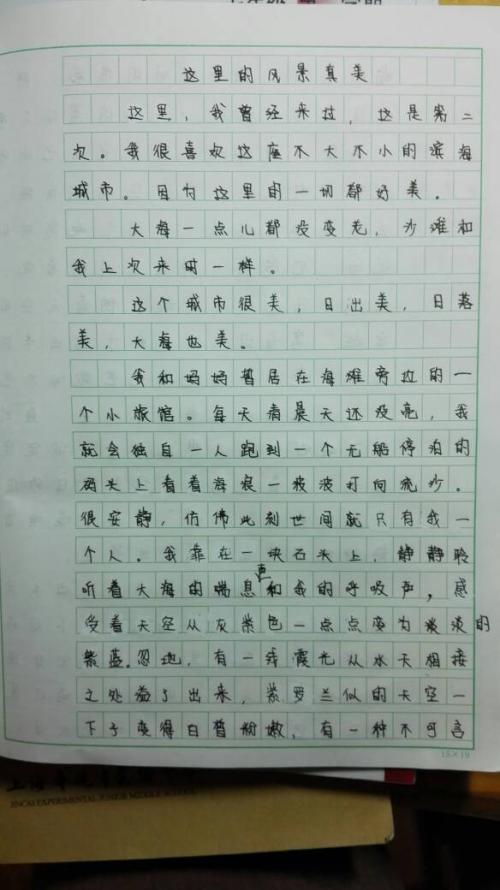 这里的风景真美
这里，我曾经来过，这是第二
次。我很喜欢这座不大不小的滨海
城市。因为这里的一切都好美。
大海一点儿都没变老，沙滩和
我上次来时一样。
这个城市很美，日出美，日落
美，大海也美。
我和妈妈暂居在海滩旁边的一
个小旅馆。每天清晨天还没亮，我
就会独自一人跑到一个无船停泊的
码头上看着海浪一波波打向流沙。
很安静，仿佛此刻世间就只有我一
个人。我靠在一块石头上，静静聆
听着大海的喘息声和我的呼吸声，感
受着天空从灰紫色一点点变为淡淡的
紫蓝。忽地，有一线霞光从水天相接
之处溢了出来，紫罗兰似的天空一
下子变得白皙粉嫩，有一种不可言
15×19
JINCAI EXPERIMENTAL JUNIOR MIDDLE SCHOOL